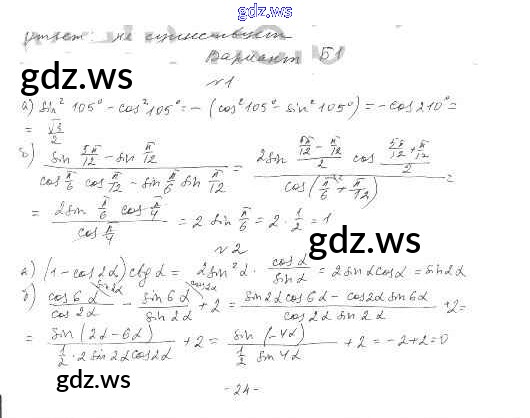 gdz.ws
ответ: не существует
Вариант Б1
gdz.ws
№1
а) sin² 105° - cos² 105° = - (cos² 105° - sin² 105°) = - cos 210° =
= √3/2
б) (sin 5π/12 - sin π/12)/(cos π/6 cos π/12 - sin π/6 sin π/12) = (2 sin (5π/12 - π/12)/2 cos (5π/12 + π/12)/2)/(cos(π/6 + π/12)) =
= (2 sin π/6 cos π/4)/(cos π/4) = 2 sin π/6 = 2 · 1/2 = 1
gdz.ws
№2
а) (1 - cos 2α) ctg α = 2 sin² α · cos α/sin α = 2 sin α cos α = sin 2α
б) cos 6α/cos 2α - sin 6α/sin 2α + 2 = (sin 2α cos 6α - cos 2α sin 6α)/(cos 2α sin 2α) + 2 =
= sin (2α - 6α)/(1/2 · 2 sin 2α cos 2α) + 2 = sin (-4α)/(1/2 sin 4α) + 2 = -2 + 2 = 0
gdz.ws
- 24 -